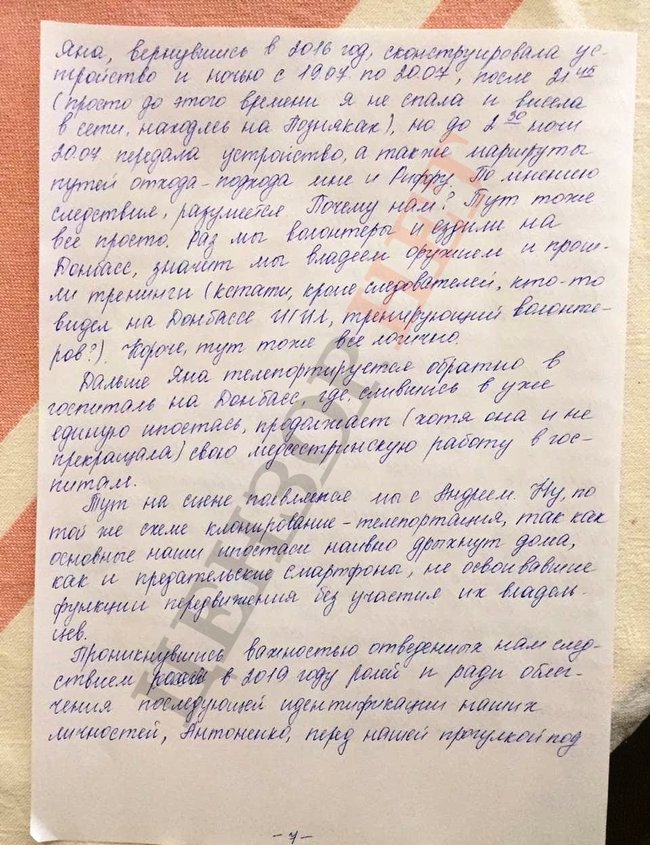 Яна, вернувшись в 2016 год, сконструировала ус-
тройство и ночью с 19.07 по 20.07, после 21 45
(просто до этого времени я не спала и висела
в сети, находясь на Позняках), но до 2 30 ночи
20.07 передала устройство, а также маршруты
путей отхода-подхода мне и Риффу. По мнению
следствия, разумеется. Почему нам? Тут тоже
все просто. Раз мы волонтеры и ездили на
Донбасс, значит мы владеем оружием и прош-
ли тренинги (кстати, кроме следователей, кто-то
видел на Донбассе ИГИЛ, тренирующий волонте-
ров?). Короче, тут тоже все логично.
Дальше Яна телепортируется обратно в
госпиталь на Донбасс, где, слившись в уже
единую ипостась, продолжает (хотя она и не
прекращала) свою медсестринскую работу в гос-
питале.
Тут на сцене появляемся мы с Андреем. Ну, по
той же схеме клонирование-телепортация, так как
основные наши ипостаси наивно дрыхнут дома,
как и предательские смартфоны, не освоившие
функции передвижения без участия их владель-
цев.
Проникнувшись важностью отведенных нам след-
ствием в 2019 году ролей и ради облег-
чения последующей идентификации наших
личностей, Антоненко, перед нашей прогулкой под
-7-
ЦЕНЗОР.НЕТ